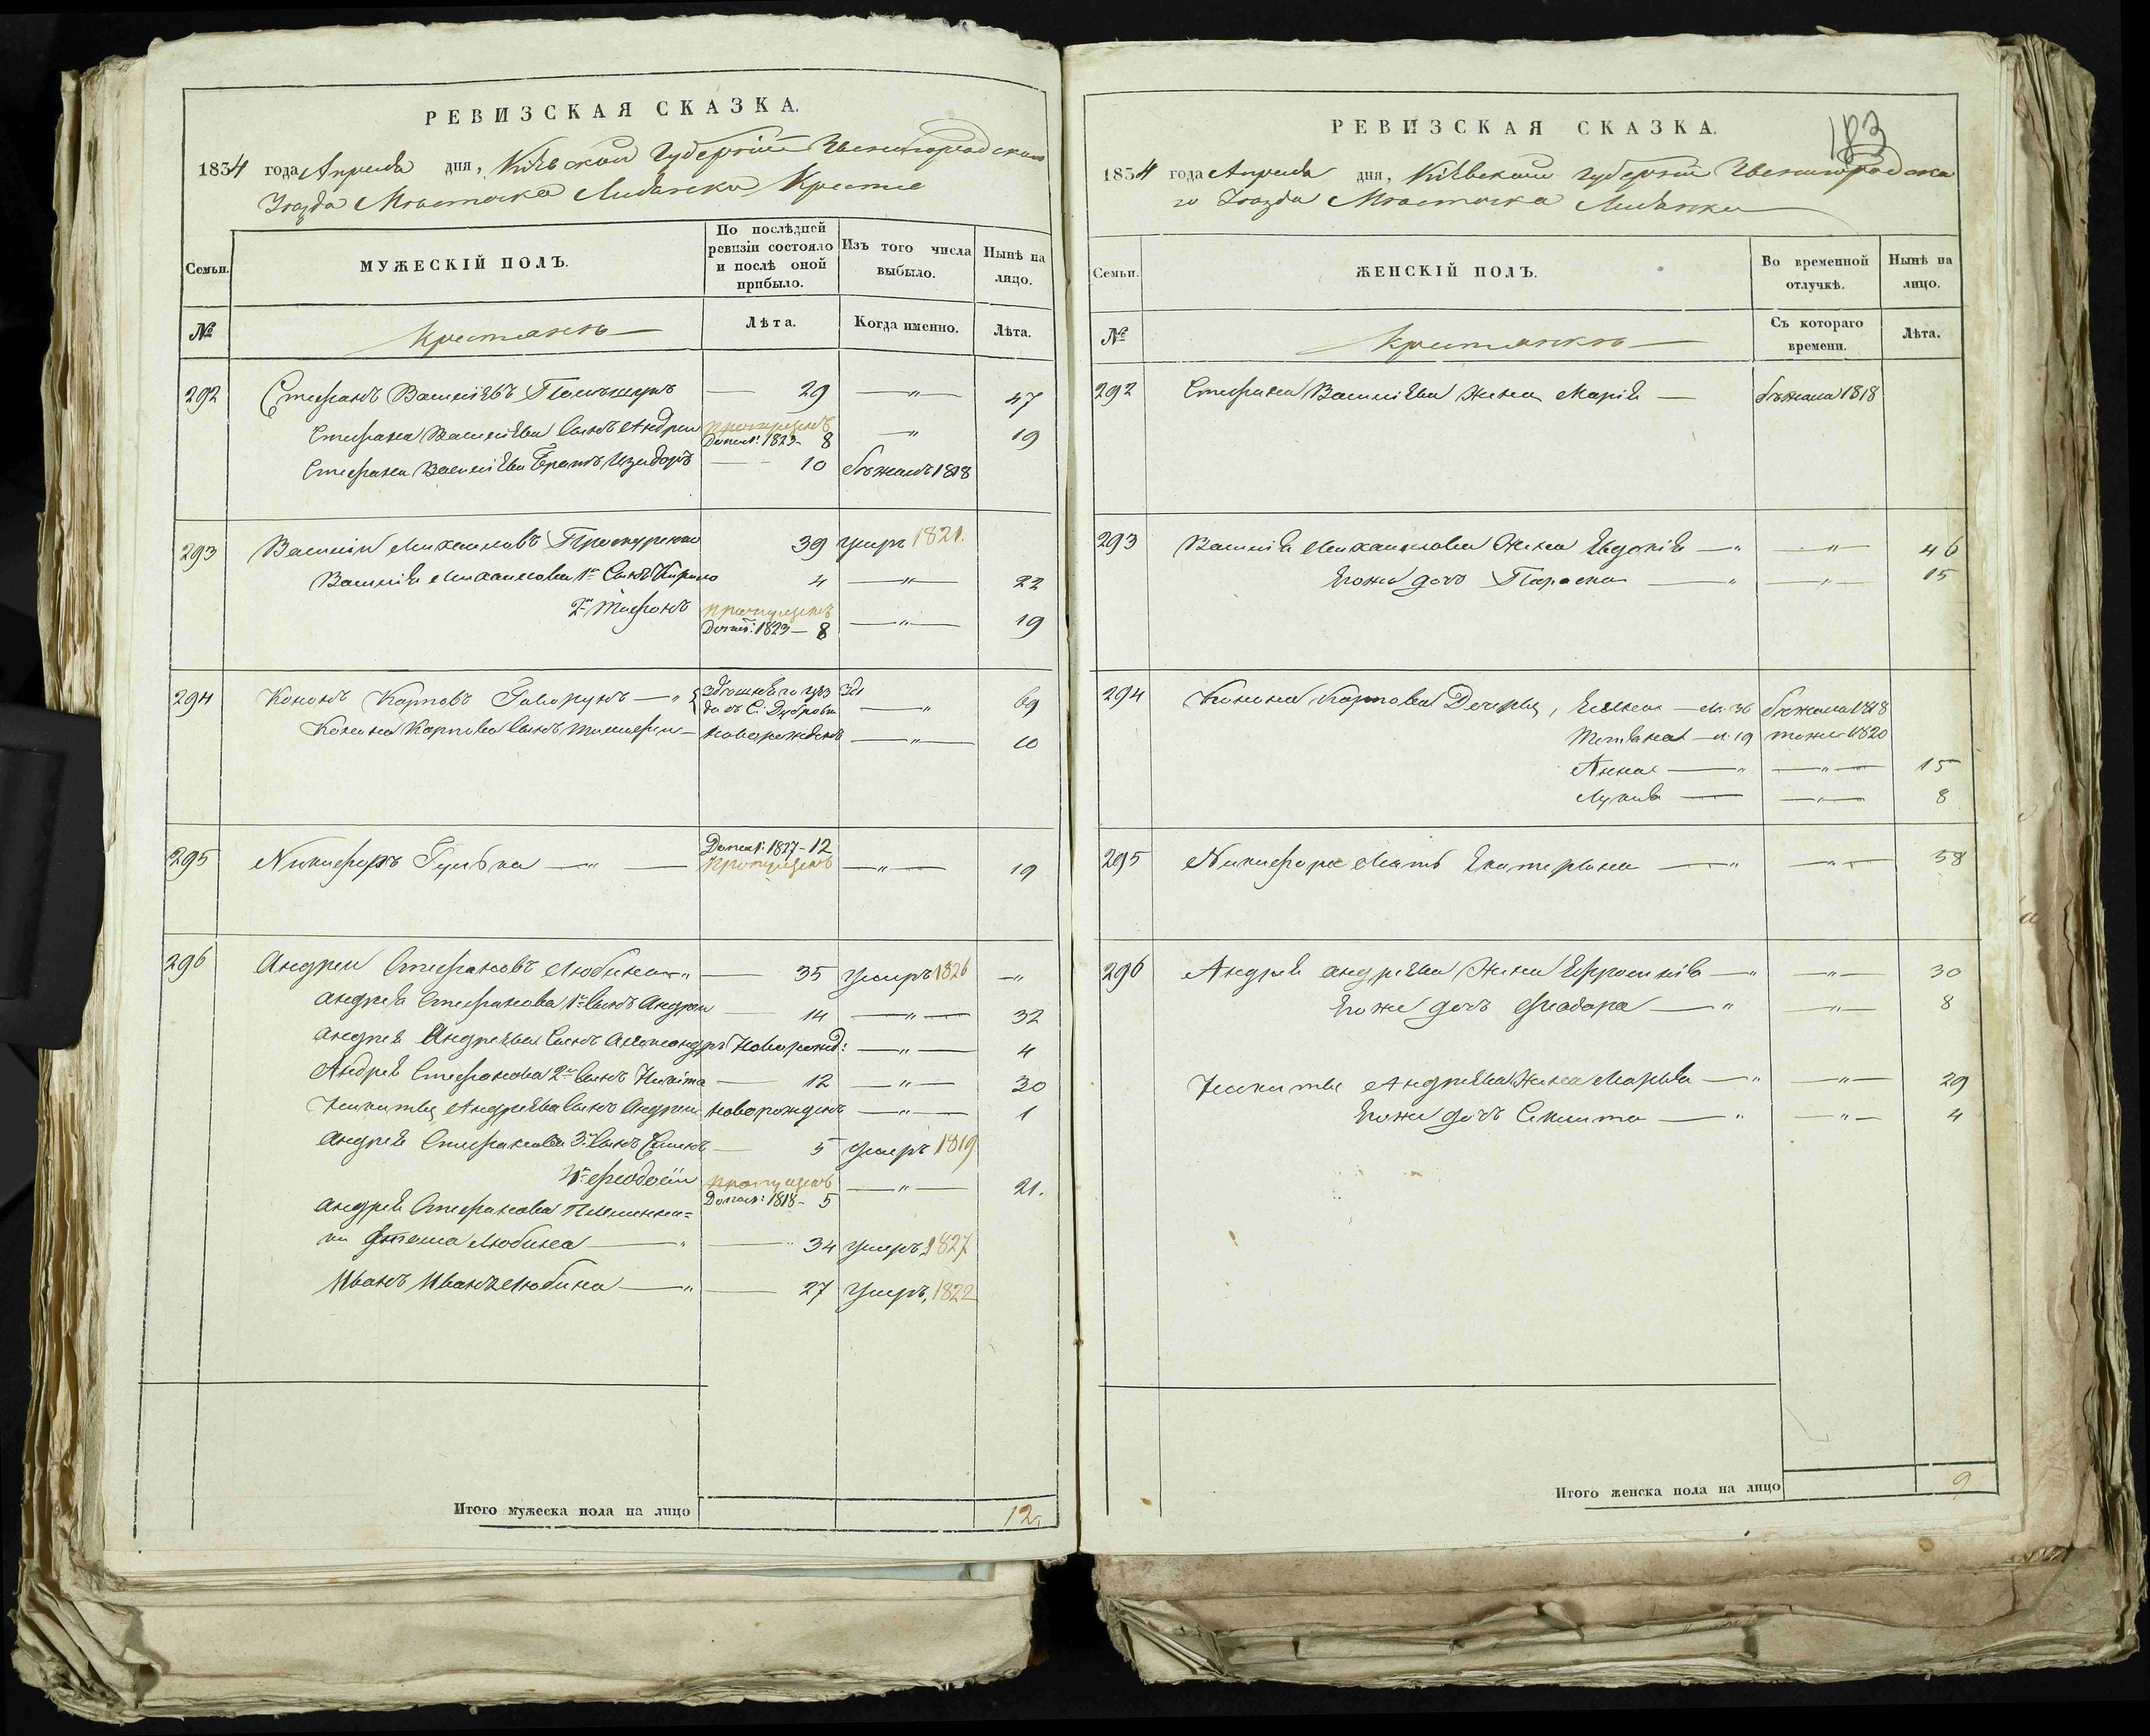 РЕВИЗСКАЯ СКАЗКА.
1834 года Апреля дня, Кіевской Губерніи Звенигородскаго
Уезда Местечка Лисянки
Семьи.
МУЖЕСКІЙ ПОЛЪ.
По послѣдней ревизіи состояло и послѣ оной прибыло.
Изъ того числа выбыло.
Нынѣ на лицо.
№
Крестьянъ
Лѣта.
Когда именно.
Лѣта.
292 Стефанъ Василіевъ — 29 — " — 47
Стефана Василіева Сынъ Андрей пропущенъ
1823 - 8 " 19
Стефана Василіева Братъ Изидоръ — 10 бѣжалъ 1818
293 Василій Михаиловъ 39 умръ 1821.
Василія Михаилова 1й Сынъ Кирило 4 — " — 22
2й Тифонъ пропущенъ
1823 — 8 — " — 19
294 Кононъ Карповъ Говорунъ — " — " 69
Конона Карпова Сынъ Тимофей — новорожденъ — " — 10
295 Никифоръ Гулька — " — 1827 - 12
пропущенъ — " — 19
296 Андрей Стефановъ Любина — " — 35 умеръ 1826 — "
Андрея Стефанова 1й Сынъ Андрей 14 — " — 32
Андрея Андреева Сынъ Александръ Новорожд: — " — 4
Андрея Стефанова 2й Сынъ Никита — 12 — " — 30
Никиты Андреева Сынъ Андрей новорожденъ — " — 1
Андрея Стефанова 3й Сынъ — 5 умеръ 1819
4й Феодосій пропущенъ — " — 21.
1818 - 5
Андрея Стефанова Племянни=
ки Любина — " — 34 умеръ 1827
Иванъ Иванъ Любина — " — 27 умеръ, 1822
Итого мужеска пола на лицо 12.
183
РЕВИЗСКАЯ СКАЗКА.
1834 года Апреля дня, Кіевской Губерніи Звенигородска
го Уезда Местечка Лисянки
Семьи.
ЖЕНСКІЙ ПОЛЪ.
Во временной отлучкѣ.
Нынѣ на лицо.
№
Крестьянкъ
Съ котораго времени.
Лѣта.
292 Стефана Василіева Жена Марія — бѣжала 1818
293 Василія Михаилова Жена Евдокія — " — " — 46
Егоже дочь Параска — " — " — 15
294 Конона Карпова Дочери, — 36 бѣжала 1818
— 19 тоже 1820
Анна — " — " — 15
8
295 Никифора Мать Екатерина — " — " — 58
296 Андрея Андреева Жена Ефросинія — " — " — 30
Егоже дочь Феодора — " — " — 8
Никиты Андреева Жена Марья — " — " — 29
Егоже дочь — " — " — 4
Итого женска пола на лицо 9